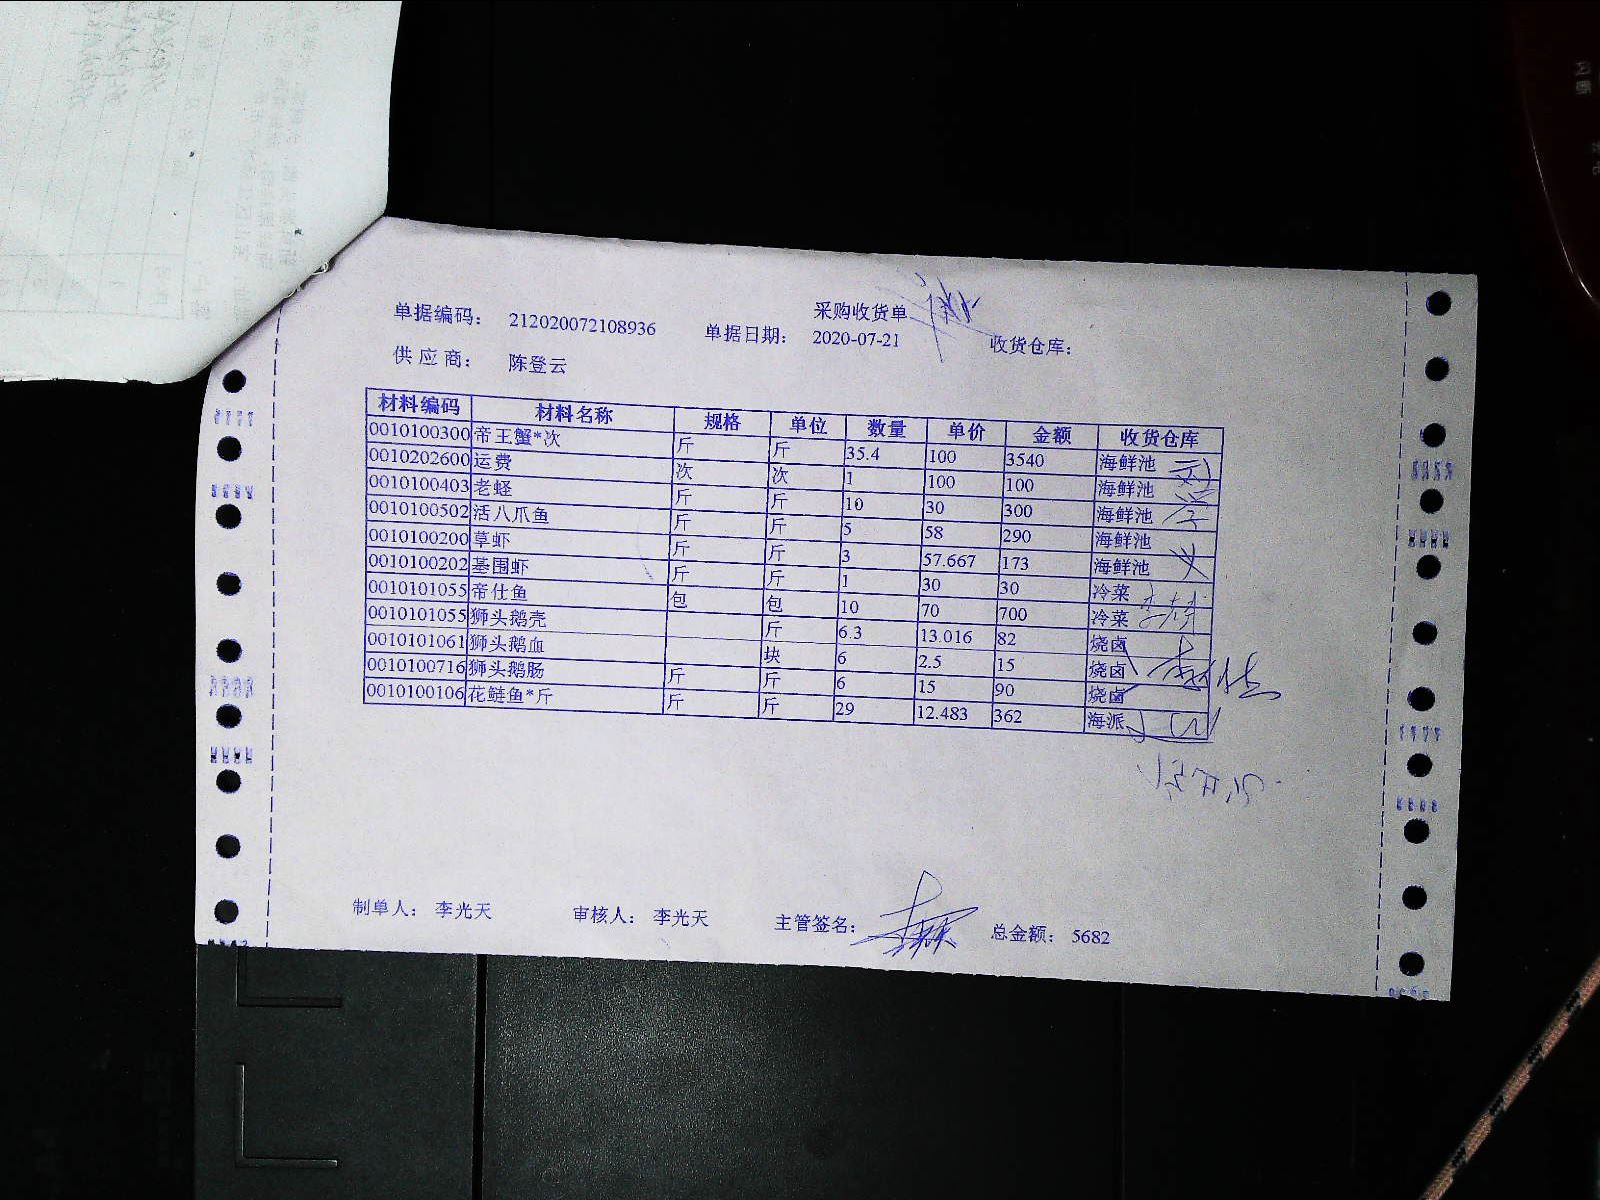 采购收货单
单据编码： 212020072108936 单据日期： 2020-07-21 收货仓库：
供 应 商： 陈登云
材料编码 材料名称 规格 单位 数量 单价 金额 收货仓库
0010100300 帝王蟹*次 斤 斤 35.4 100 3540 海鲜池
0010202600 运费 次 次 1 100 100 海鲜池
0010100403 老蛏 斤 斤 10 30 300 海鲜池
0010100502 活八爪鱼 斤 斤 5 58 290 海鲜池
0010100200 草虾 斤 斤 3 57.667 173 海鲜池
0010100202 基围虾 斤 斤 1 30 30 冷菜
0010101055 帝仕鱼 包 包 10 70 700 冷菜
0010101055 狮头鹅壳 斤 6.3 13.016 82 烧卤
0010101061 狮头鹅血 块 6 2.5 15 烧卤
0010100716 狮头鹅肠 斤 斤 6 15 90 烧卤
0010100106 花鲢鱼*斤 斤 斤 29 12.483 362 海派
制单人： 李光天 审核人： 李光天 主管签名： 总金额： 5682